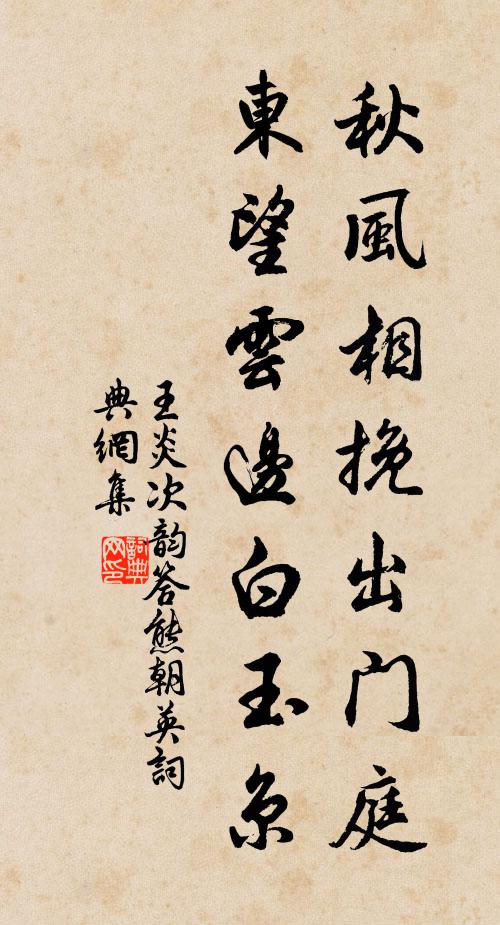 秋風相挽出門庭
東望雲邊白玉京
王炎次韵答熊朝英詞
典網集
詞典
网印